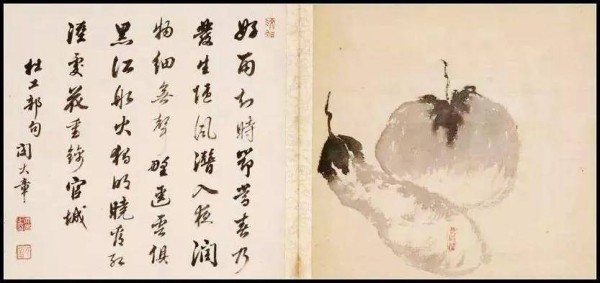 好雨知時節當春乃
發生随風潛入夜潤
物細無聲野逕雲俱
黑江船火獨明曉看紅
濕處花重錦官城
杜工部句
大章